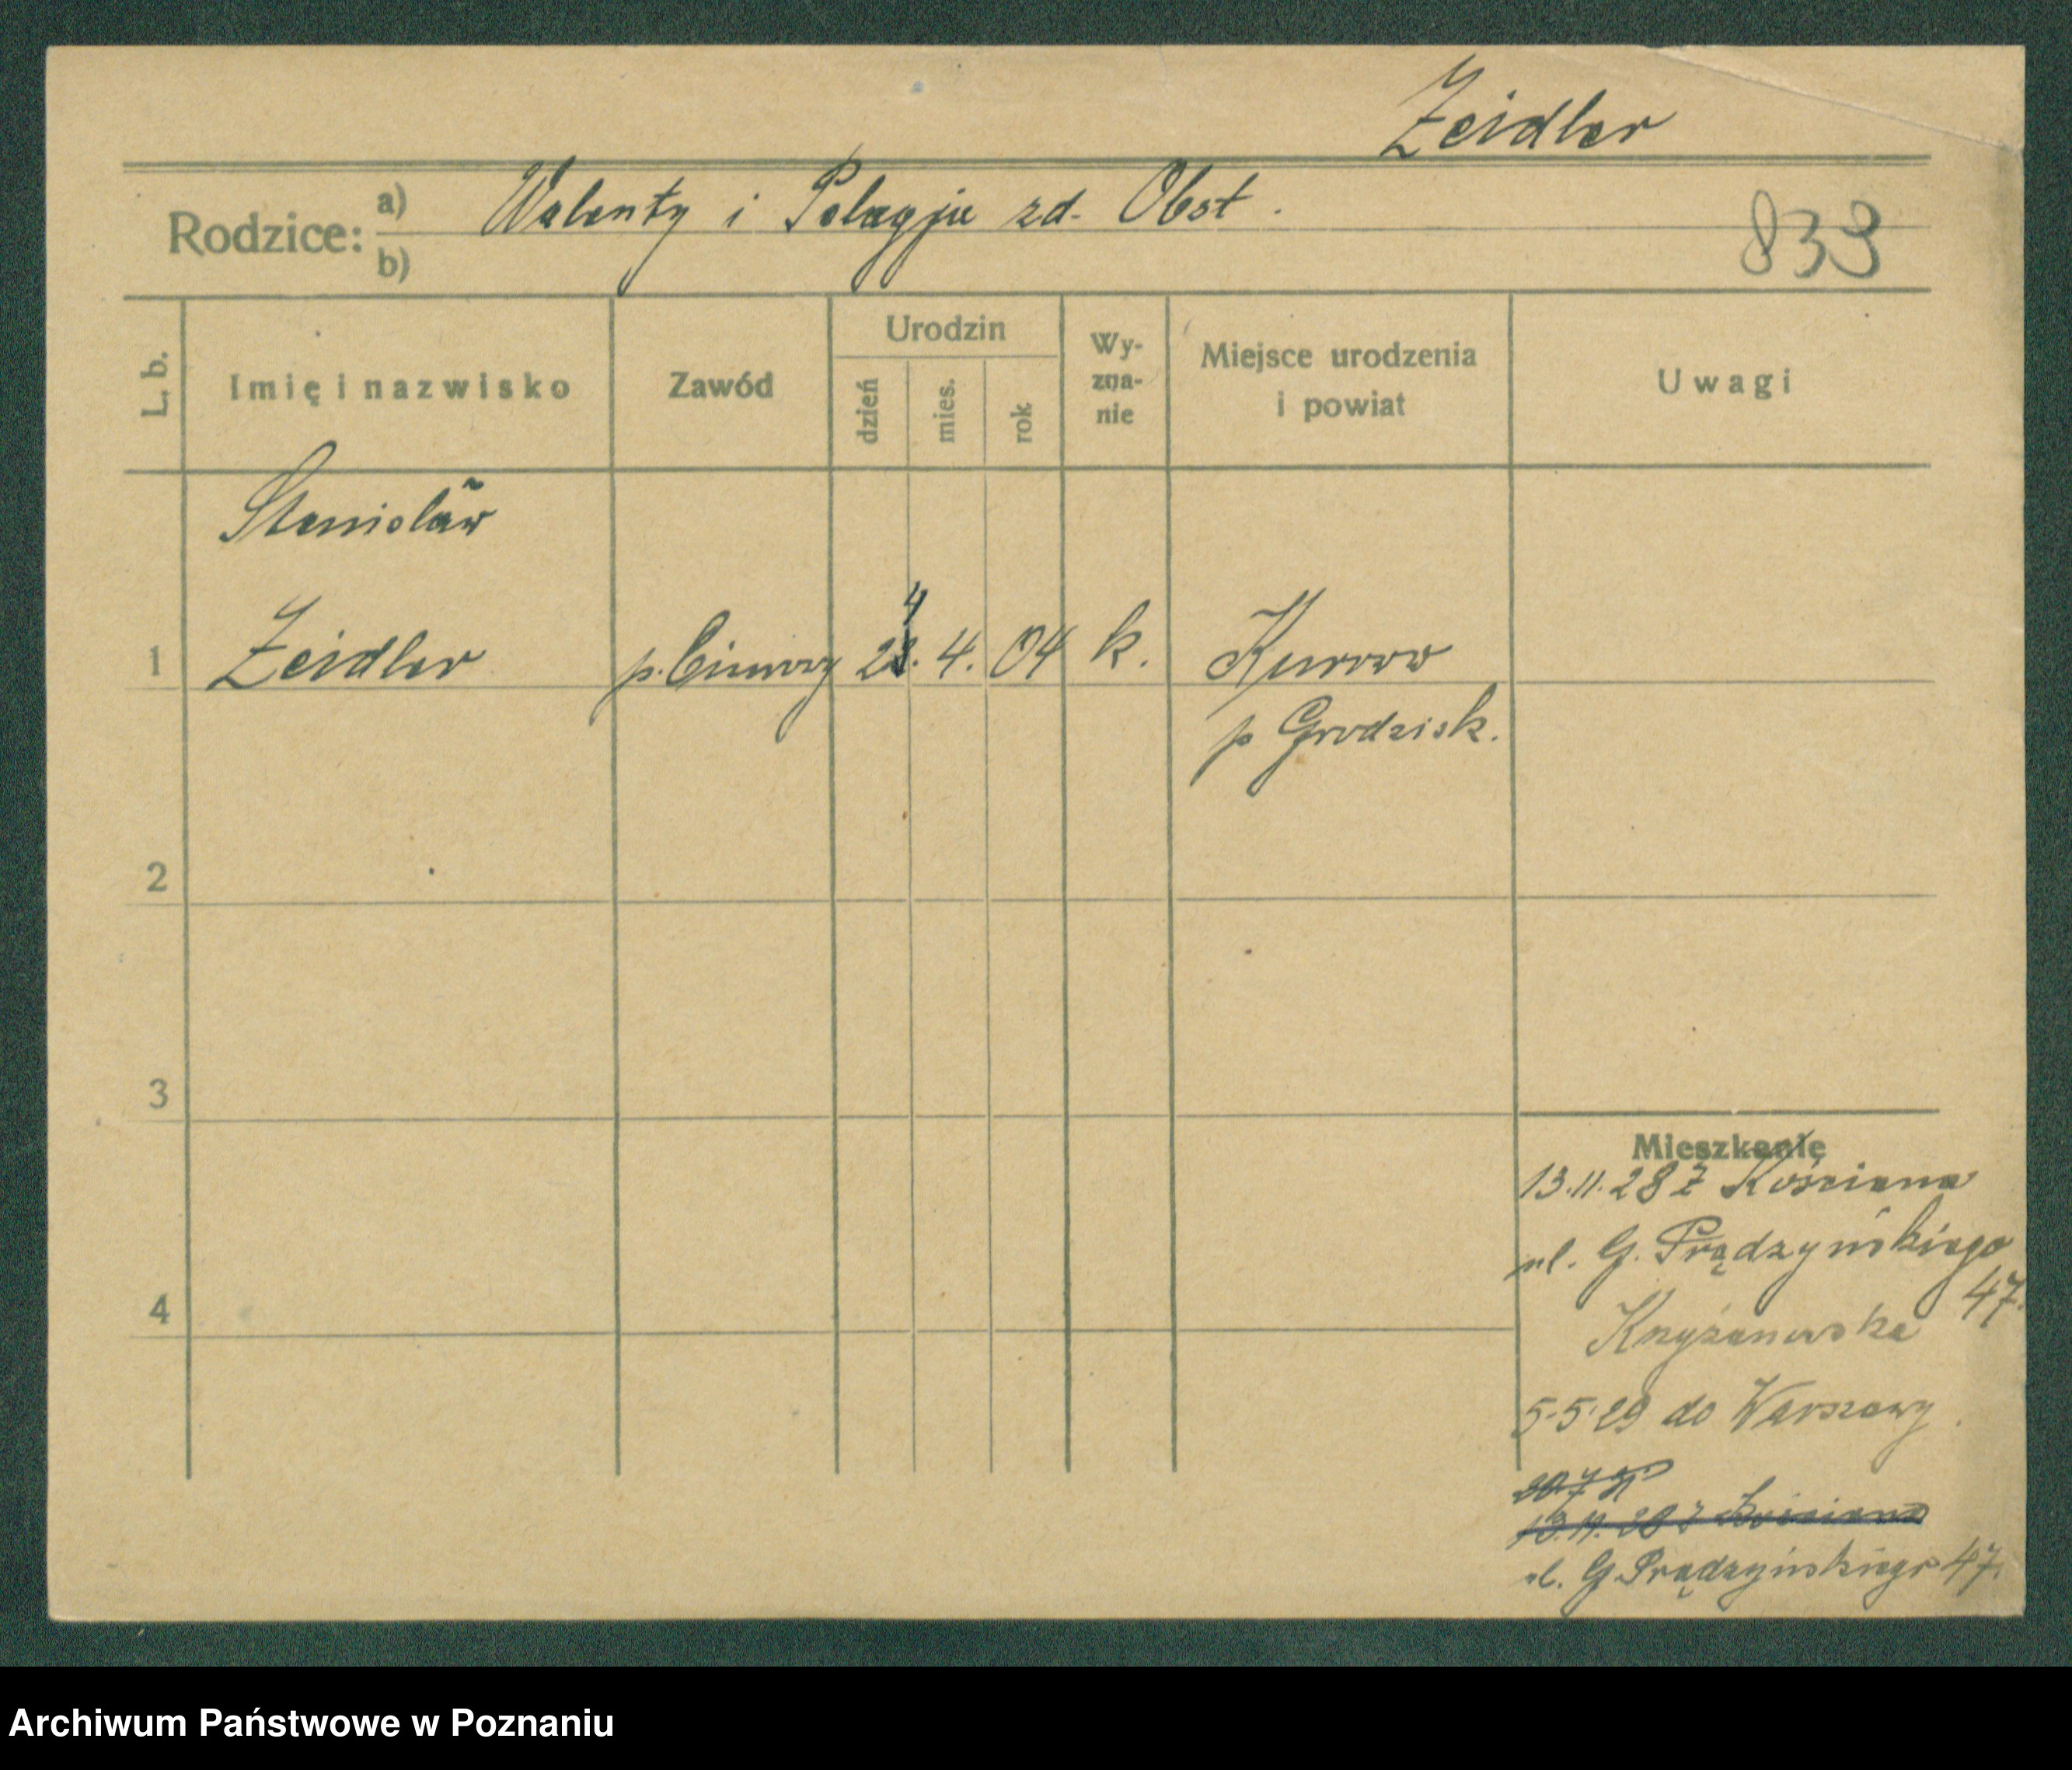 Zeidler
Rodzice: a) Walenty i Pelagja zd. Obst.
b)
833
L. b.
Imię i nazwisko
Zawód
Urodzin
dzień
mies.
rok
Wy-
zna-
nie
Miejsce urodzenia
i powiat
Uwagi
Stanisław
4
1 Zeidler p. biurowy 28. 4. 04 k. Kurowo
p Grodzisk.
2
3
4
Mieszkanie
13.11.28 z Kościana
ul. G. Prądzyńskiego
47.
Krzyżanowska
5.5.29 do Warszawy
13.11.28 z Kościana
ul. G. Prądzyńskiego 47.
Archiwum Państwowe w Poznaniu